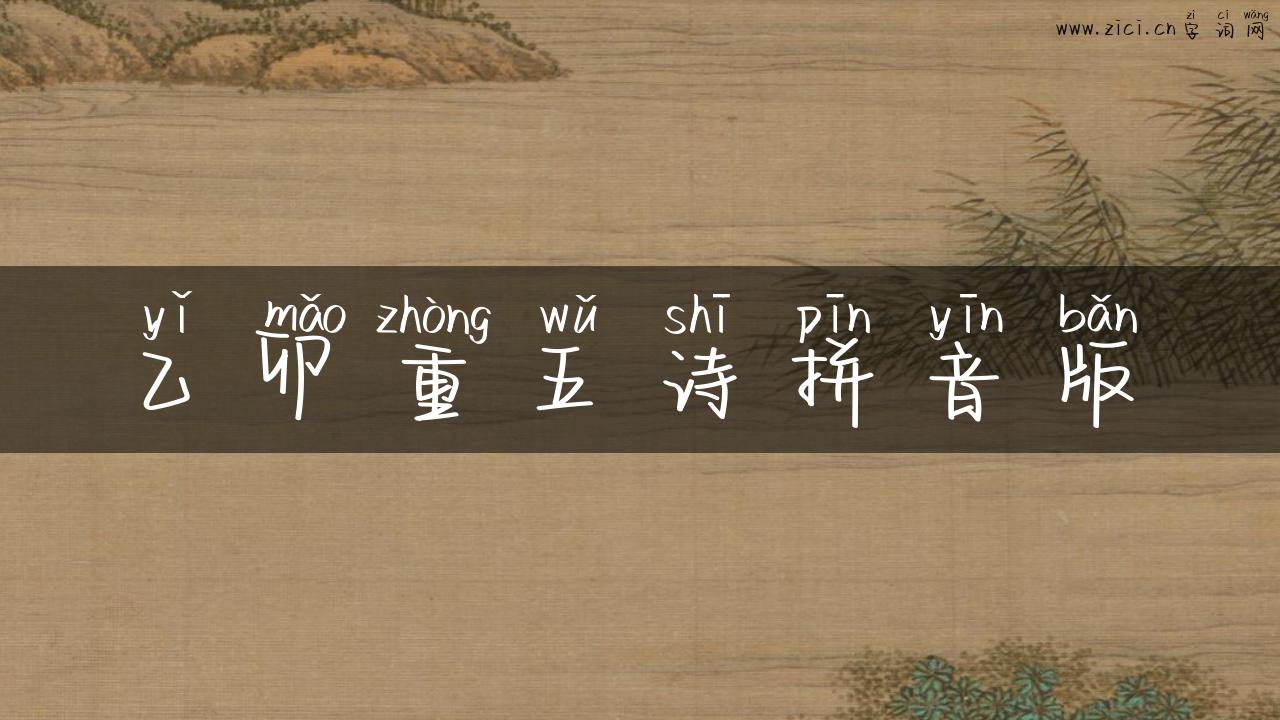 zì cí wǎng
www.zici.cn 字词网
yǐ mǎo zhòng wǔ shī pīn yīn bǎn
乙卯重五诗拼音版